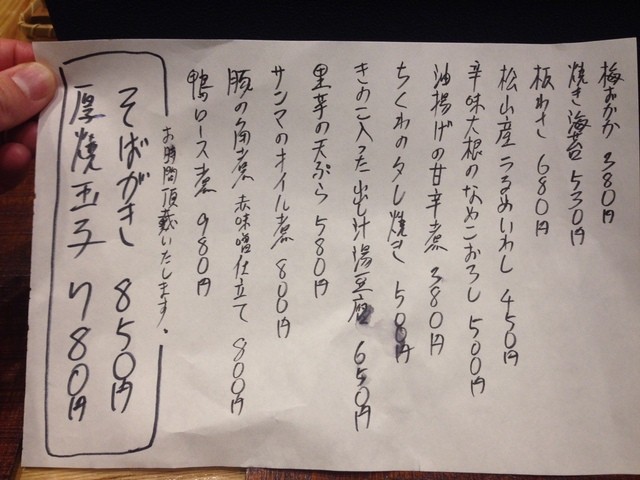 梅おかか 380円
焼き海苔 530円
板わさ 680円
松山産うるめいわし 450円
辛味大根のなめこおろし 500円
油揚げの甘辛煮 380円
ちくわのタレ焼き 500円
きのこ入った出し汁湯豆腐 650円
里芋の天ぷら 580円
サンマのオイル煮 800円
豚の角煮 赤味噌仕立て 800円
鴨ロース煮 980円
お時間頂戴いたします。
そばがき 850円
厚焼玉子 780円